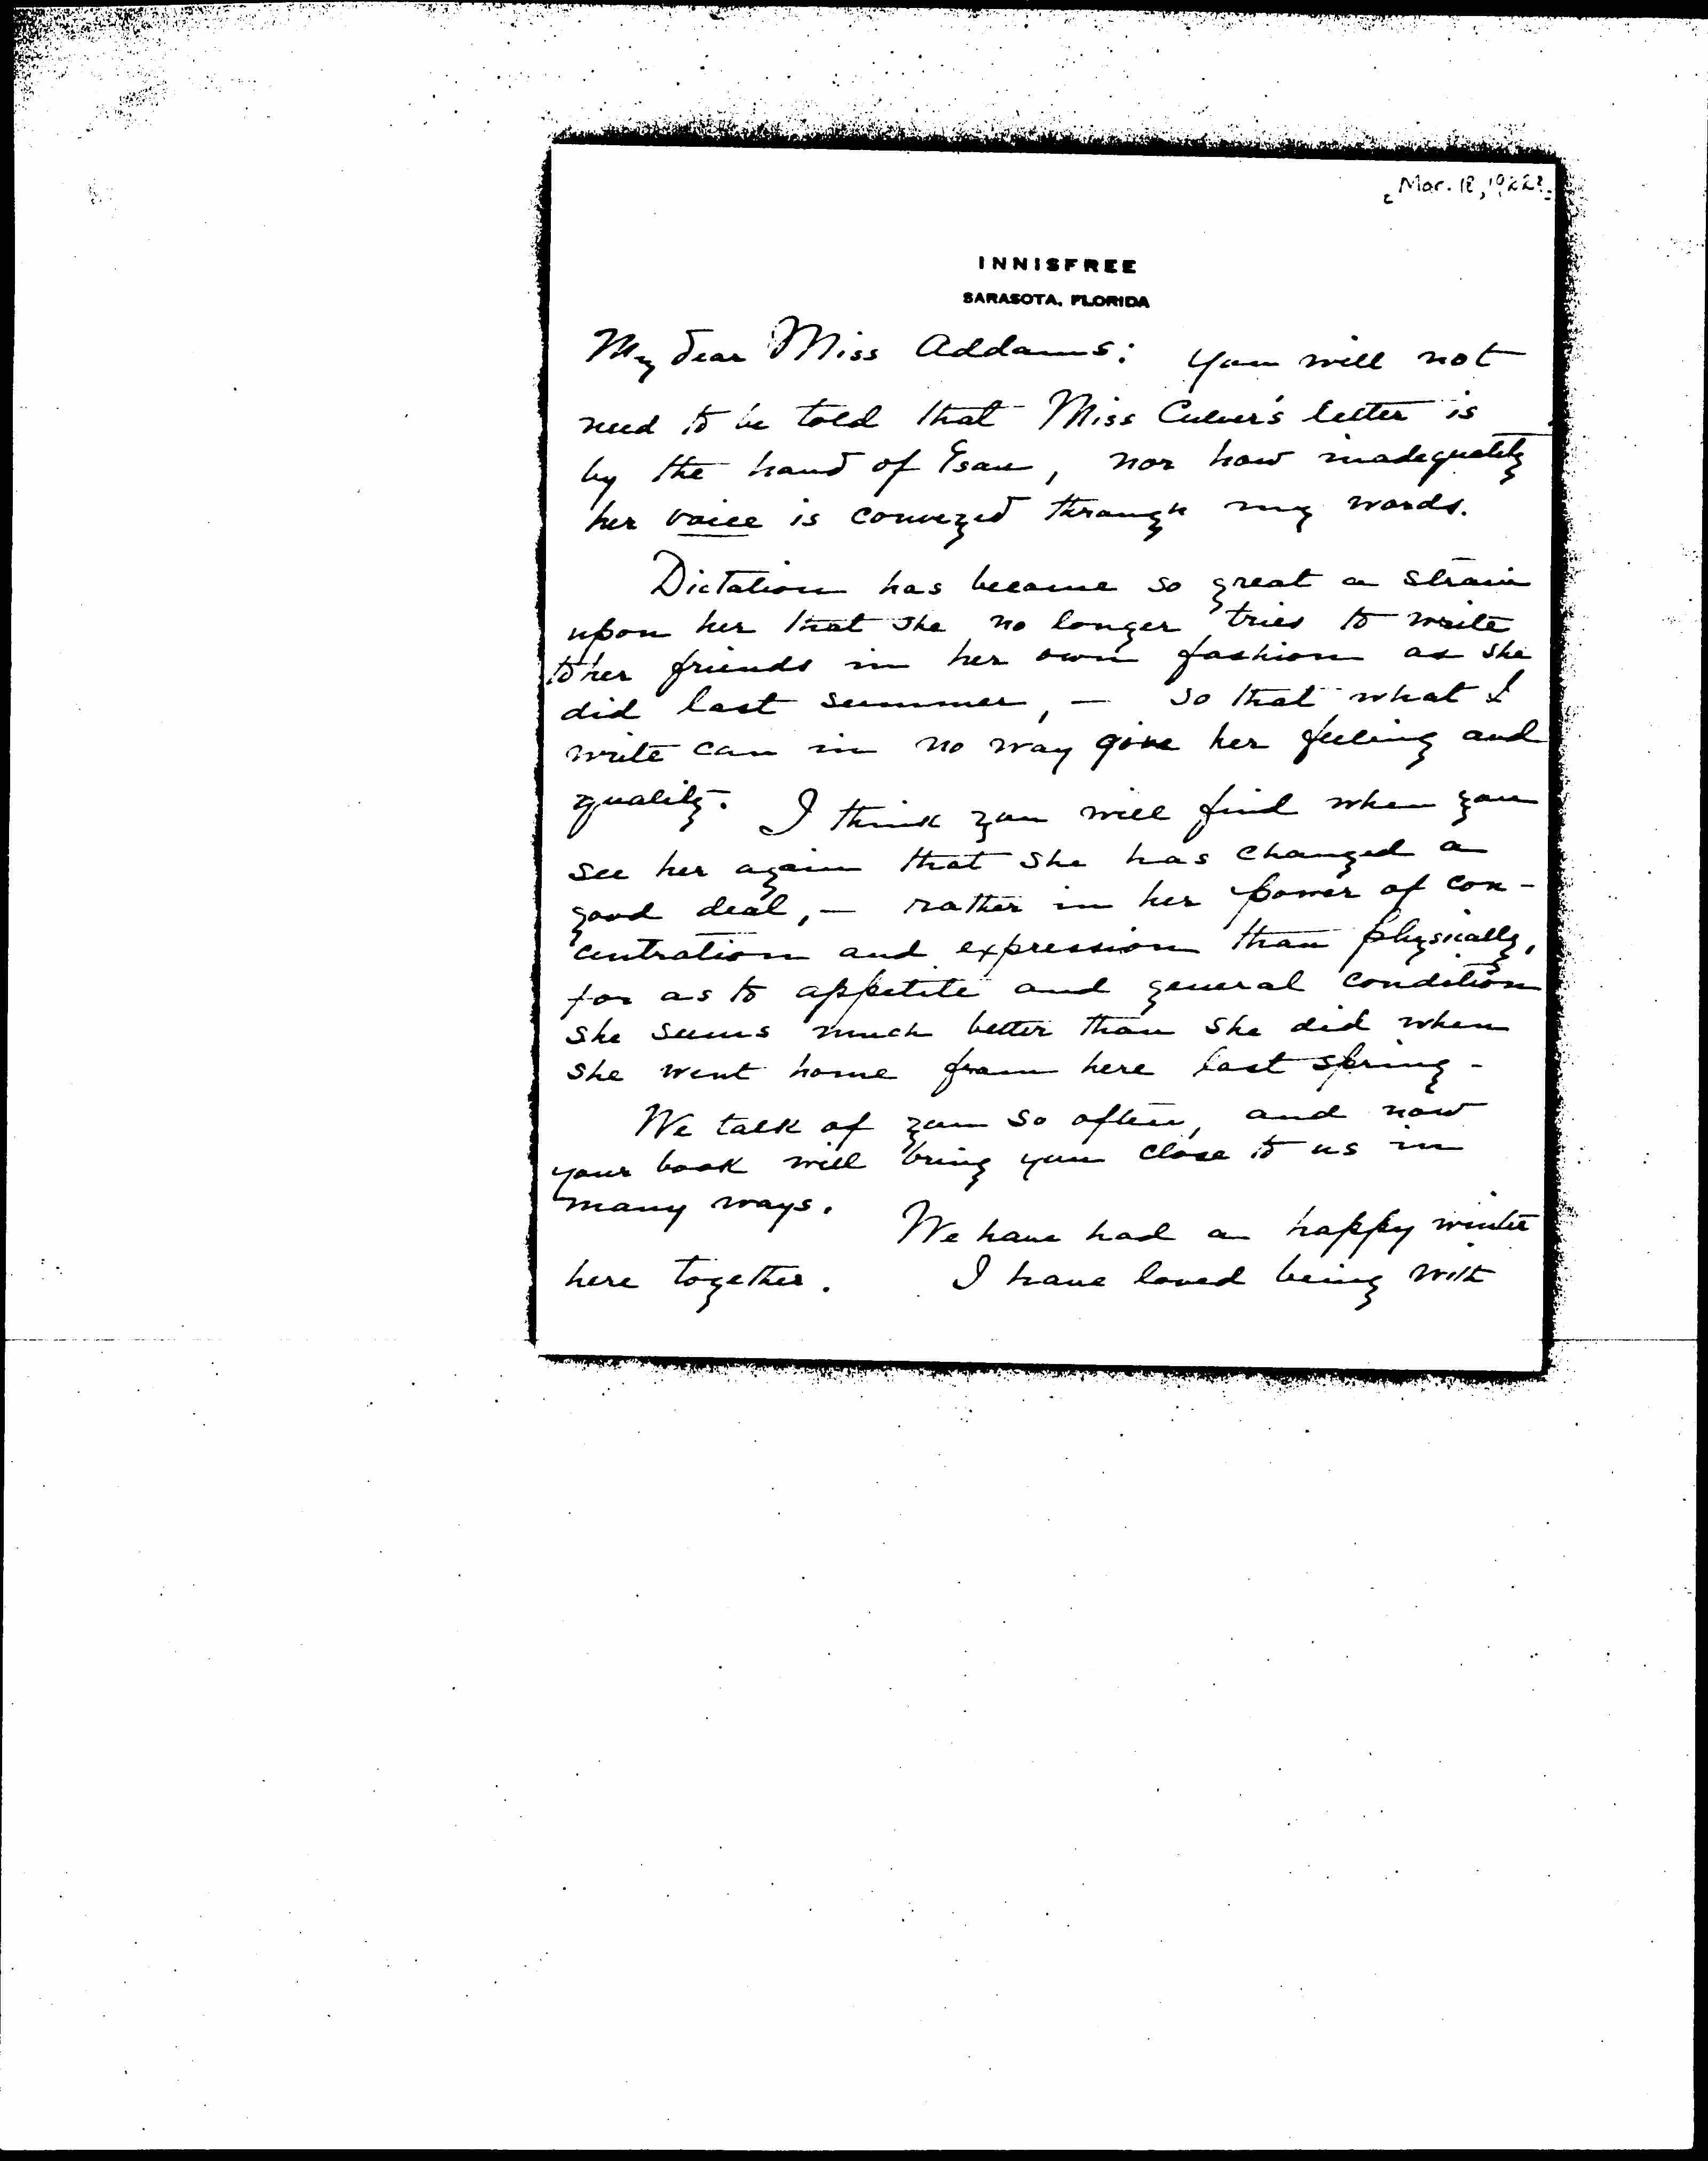 [Mar. 18, 1922?]
INNISFREE
SARASOTA, FLORIDA
My dear Miss Addams: You will not
need to be told that Miss Culver's letter is
by the hand of Esau, nor how inadequately
her voice is conveyed through my words.
Dictation has become so great a strain
upon her that she no longer tries to write
to her friends in her own fashion as she
did last summer, — so that what I
write can in no way give her feeling and
quality. I think you will find when you
see her again that she has changed a
good deal, — rather in her power of con-
centration and expression than physically,
for as to appetite and general condition
she seems much better than she did when
she went home from here last spring -
We talk of you so often, and now
your book will bring you close to us in
many ways. We have had a happy winter
here together. I have loved being with